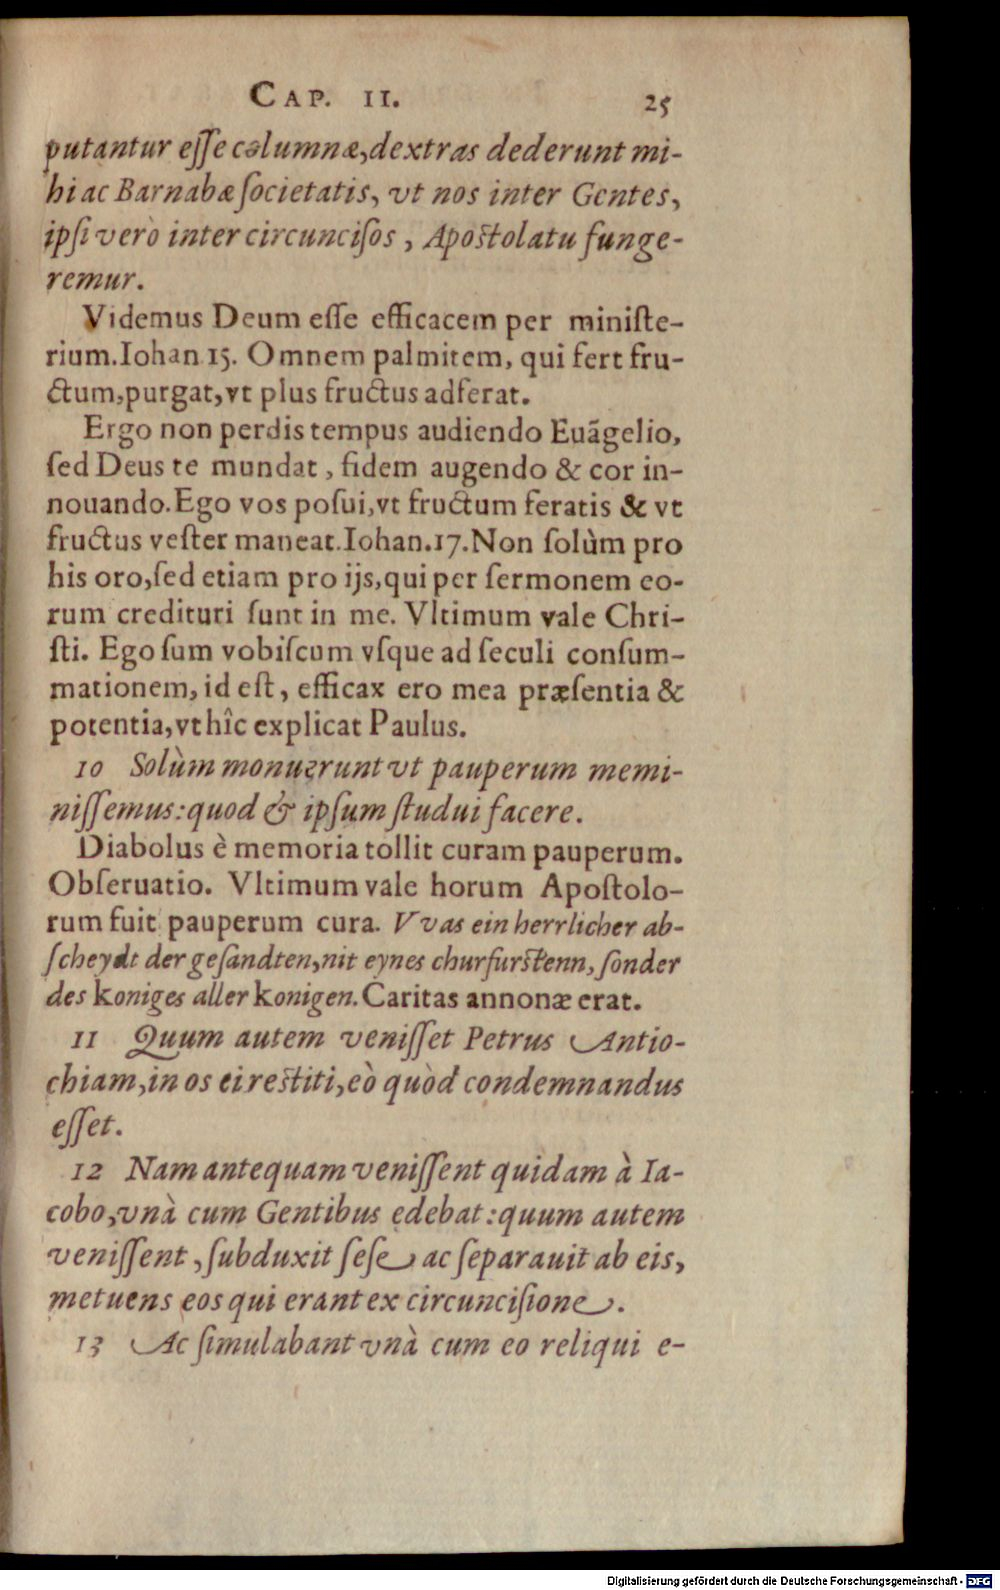 CAP. II. 25
putantur eſſe columnæ, dextras dederunt mi-
hi ac Barnabæ ſocietatis, vt nos inter Gentes,
ipſi verò inter circunciſos, Apoſtolatu funge-
remur.
Videmus Deum eſſe efficacem per miniſte-
rium. Iohan 15. Omnem palmitem, qui fert fru-
ctum, purgat, vt plus fructus adferat.
Ergo non perdis tempus audiendo Euãgelio,
ſed Deus te mundat, fidem augendo & cor in-
nouando. Ego vos poſui, vt fructum feratis & vt
fructus veſter maneat. Iohan. 17. Non ſolùm pro
his oro, ſed etiam pro ijs, qui per ſermonem eo-
rum credituri ſunt in me. Vltimum vale Chri-
ſti. Ego ſum vobiſcum vſque ad ſeculi conſum-
mationem, id eſt, efficax ero mea præſentia &
potentia, vt hîc explicat Paulus.
10 Solùm monuerunt vt pauperum memi-
niſſemus: quod & ipſum ſtudui facere.
Diabolus è memoria tollit curam pauperum.
Obſeruatio. Vltimum vale horum Apoſtolo-
rum fuit pauperum cura. Vvas ein herrlicher ab-
ſcheydt der geſandten, nit eynes churfurſtenn, ſonder
des koniges aller konigen. Caritas annonæ erat.
11 Quum autem veniſſet Petrus Antio-
chiam, in os ei reſtiti, eò quòd condemnandus
eſſet.
12 Nam antequam veniſſent quidam à Ia-
cobo, vnà cum Gentibus edebat: quum autem
veniſſent, ſubduxit ſeſe ac ſeparauit ab eis,
metuens eos qui erant ex circunciſione.
13 Ac ſimulabant vnà cum eo reliqui e-
Digitalisierung gefördert durch die Deutsche Forschungsgemeinschaft - DFG